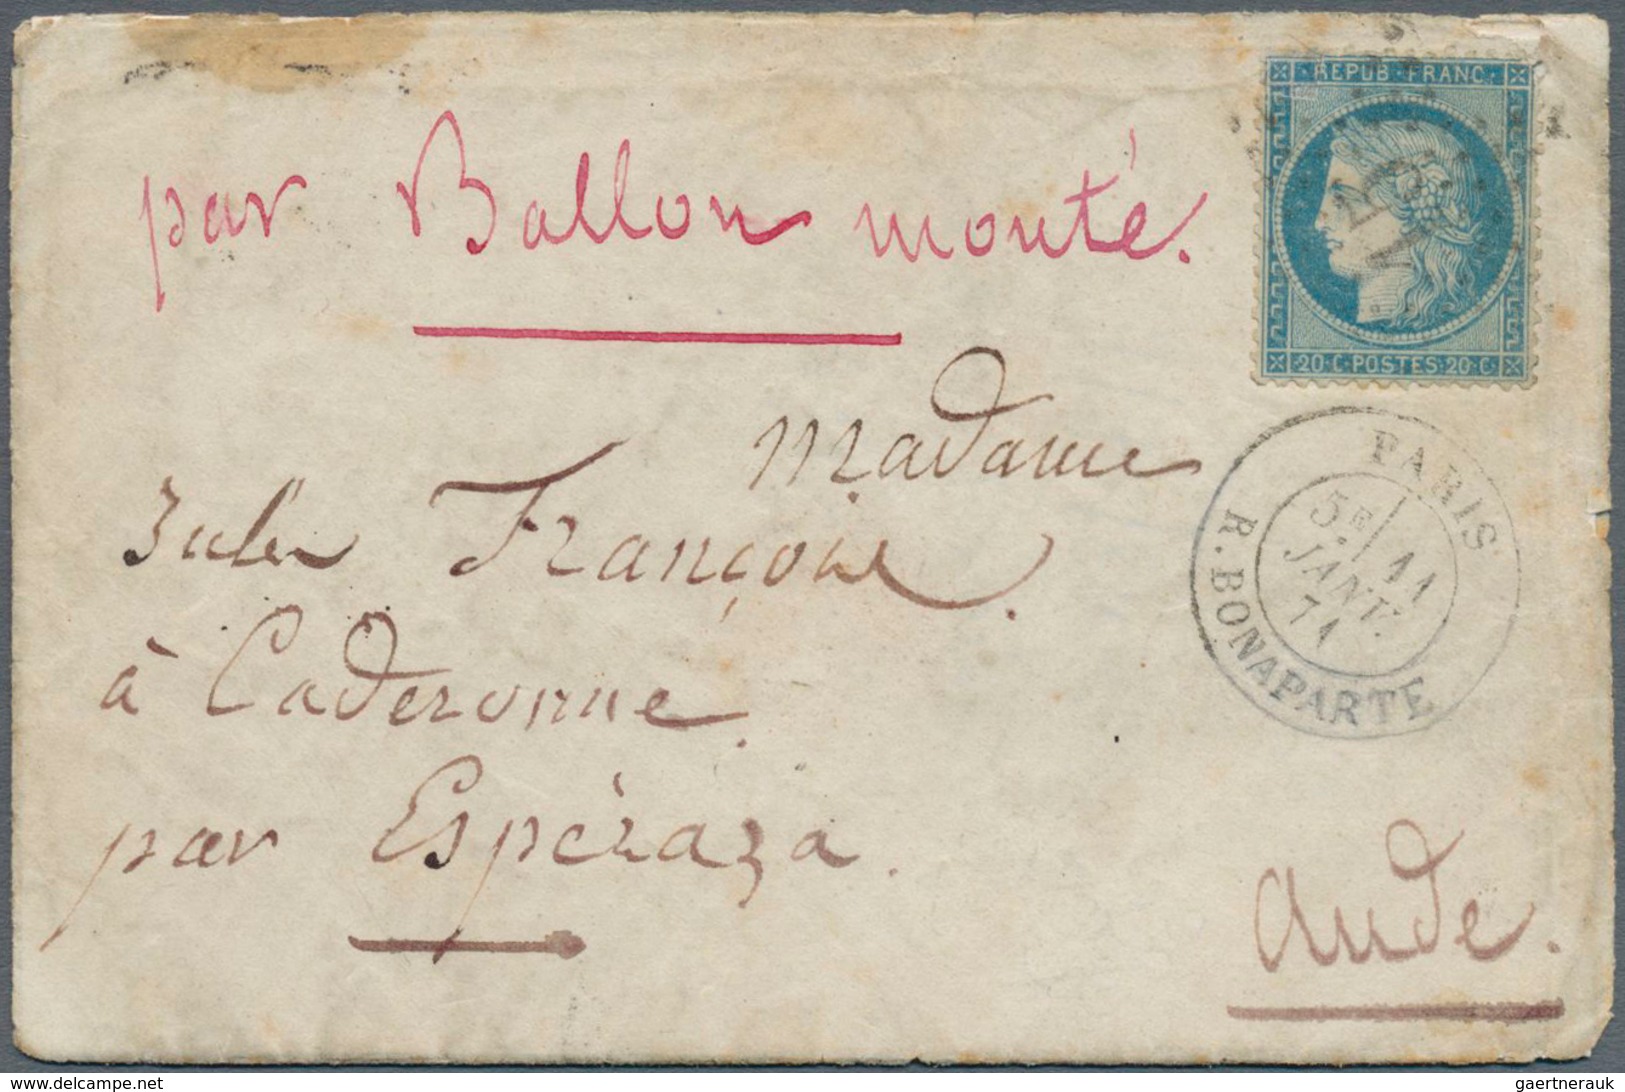 par Ballon monté.
REPUB·FRANC·
20·C·POSTES·20·C·
Madame
Jules François.
à Caderonne.
par Espèraza.
Aude.
PARIS
5E 11
JANV.
71
R. BONAPARTE
www.delcampe.net
gaertnerauk